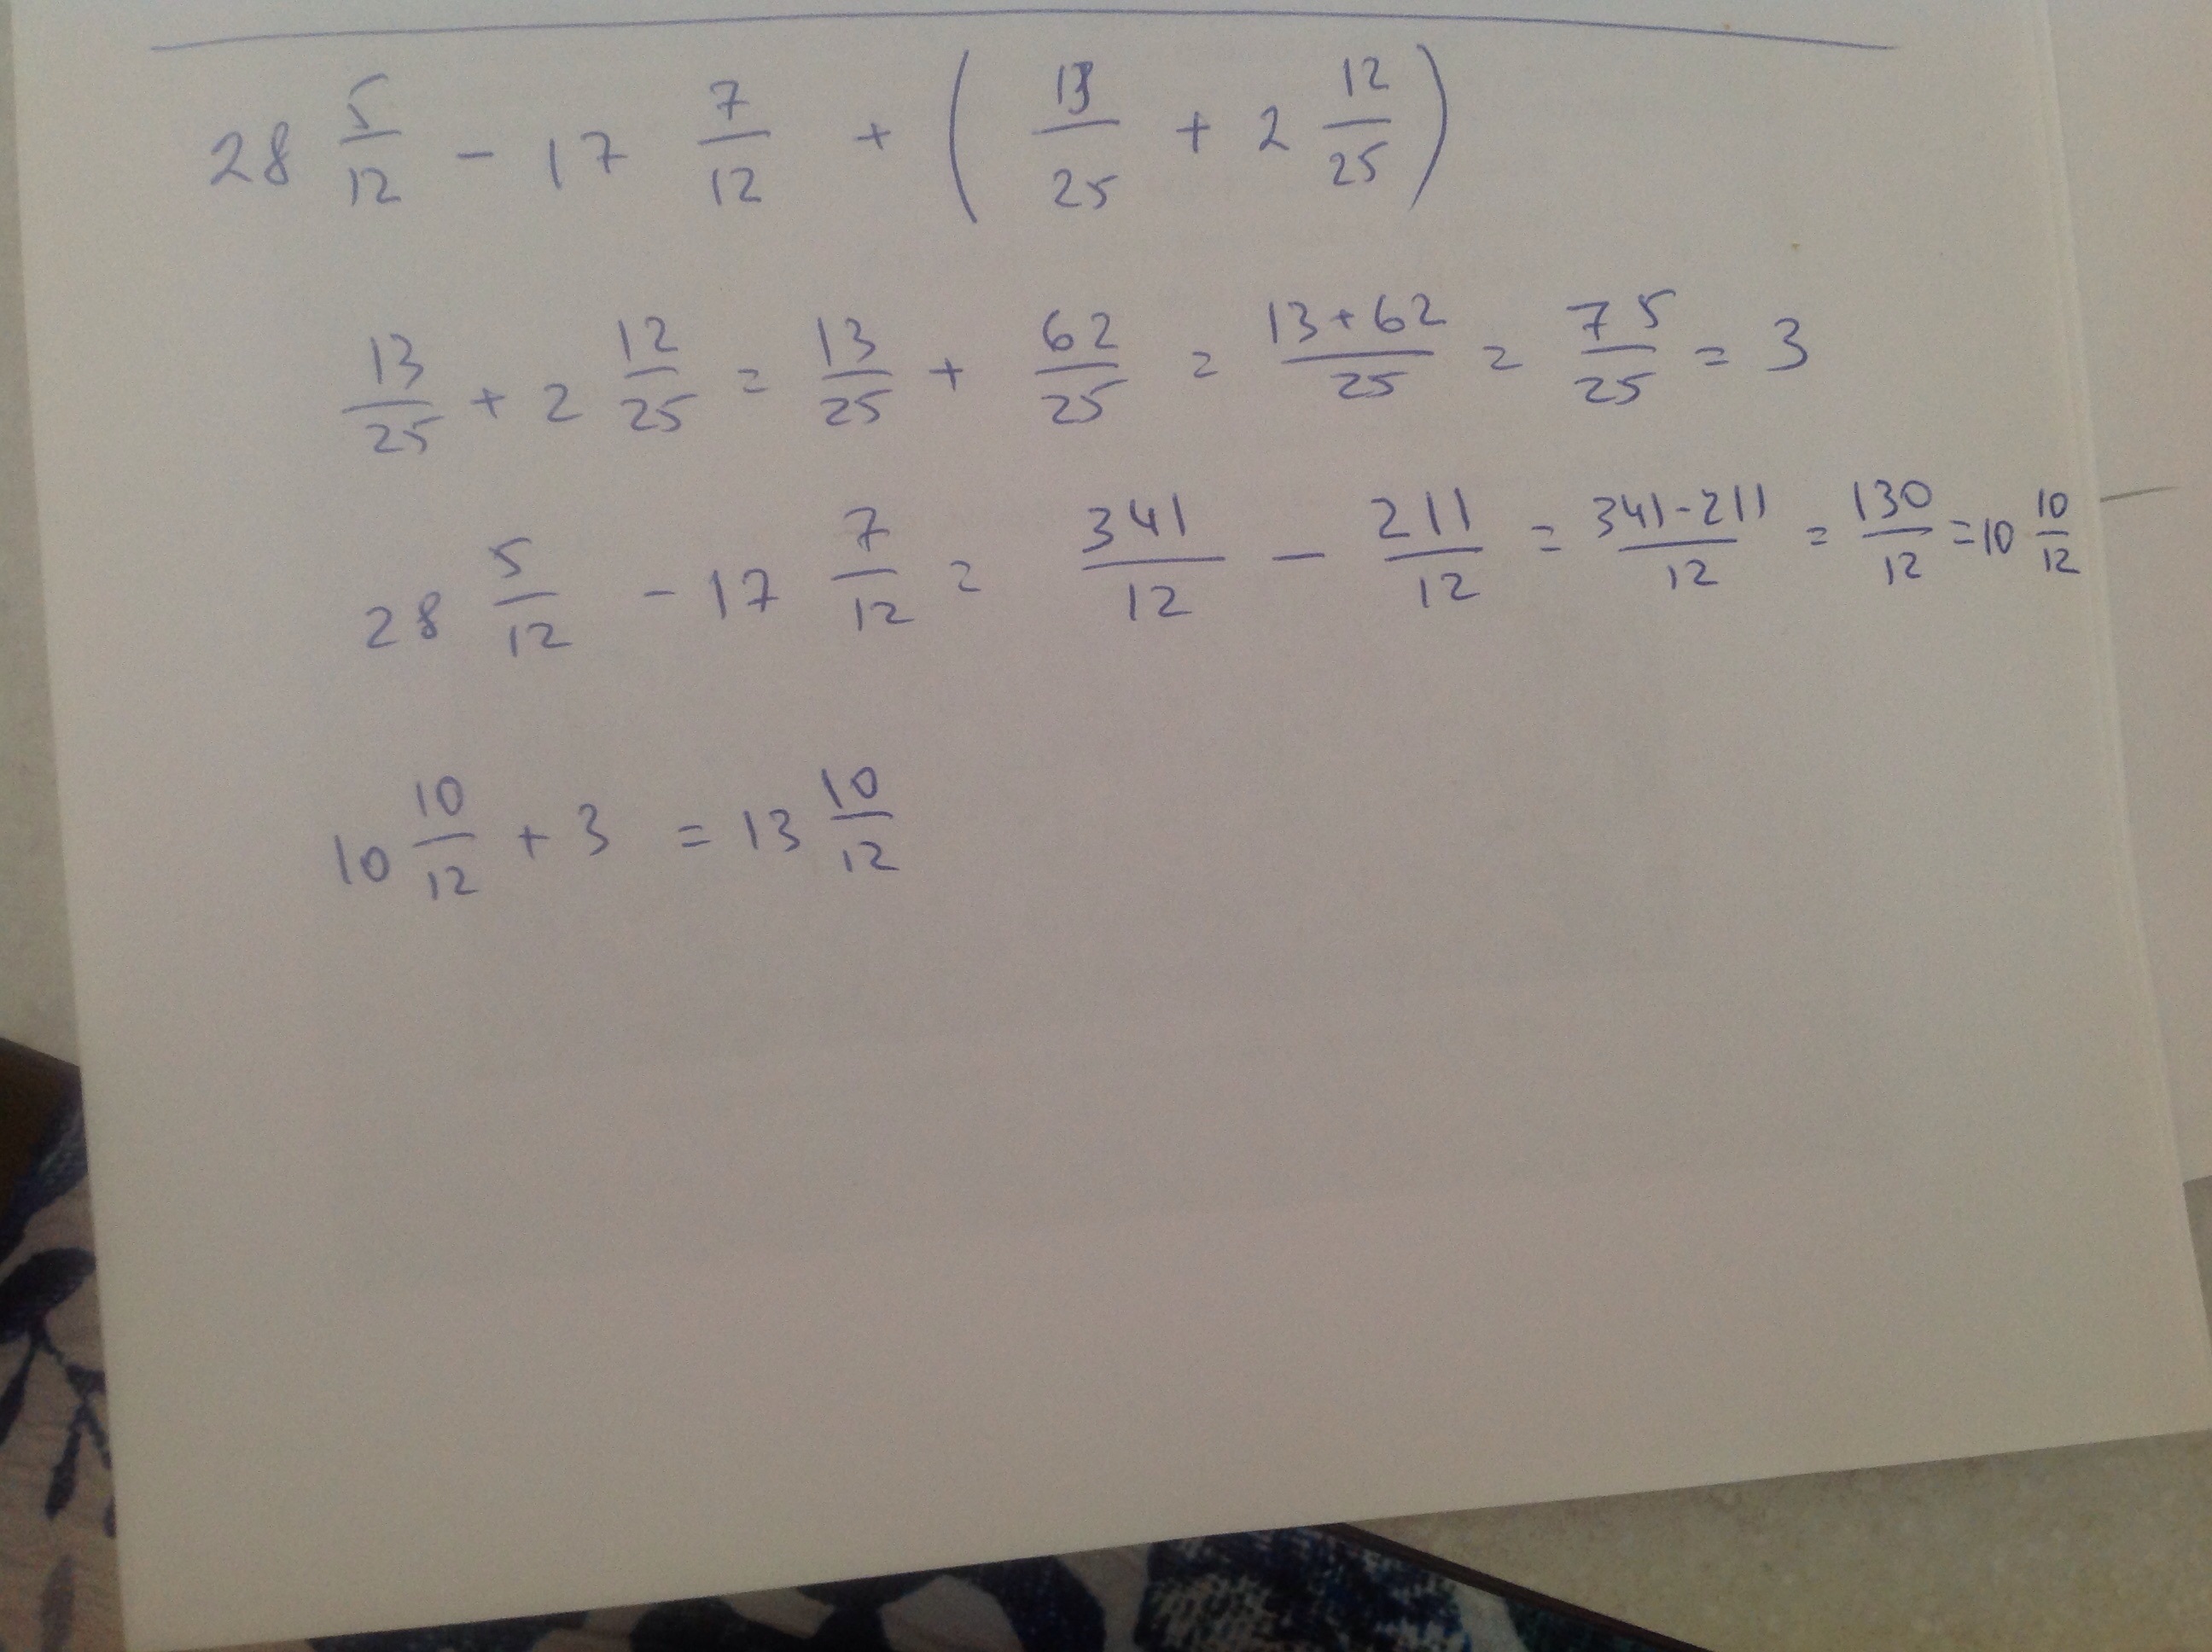 28 5/12 - 17 7/12 + ( 13/25 + 2 12/25 )
13/25 + 2 12/25 = 13/25 + 62/25 = 13+62/25 = 75/25 = 3
28 5/12 - 17 7/12 = 341/12 - 211/12 = 341-211/12 = 130/12 = 10 10/12
10 10/12 + 3 = 13 10/12